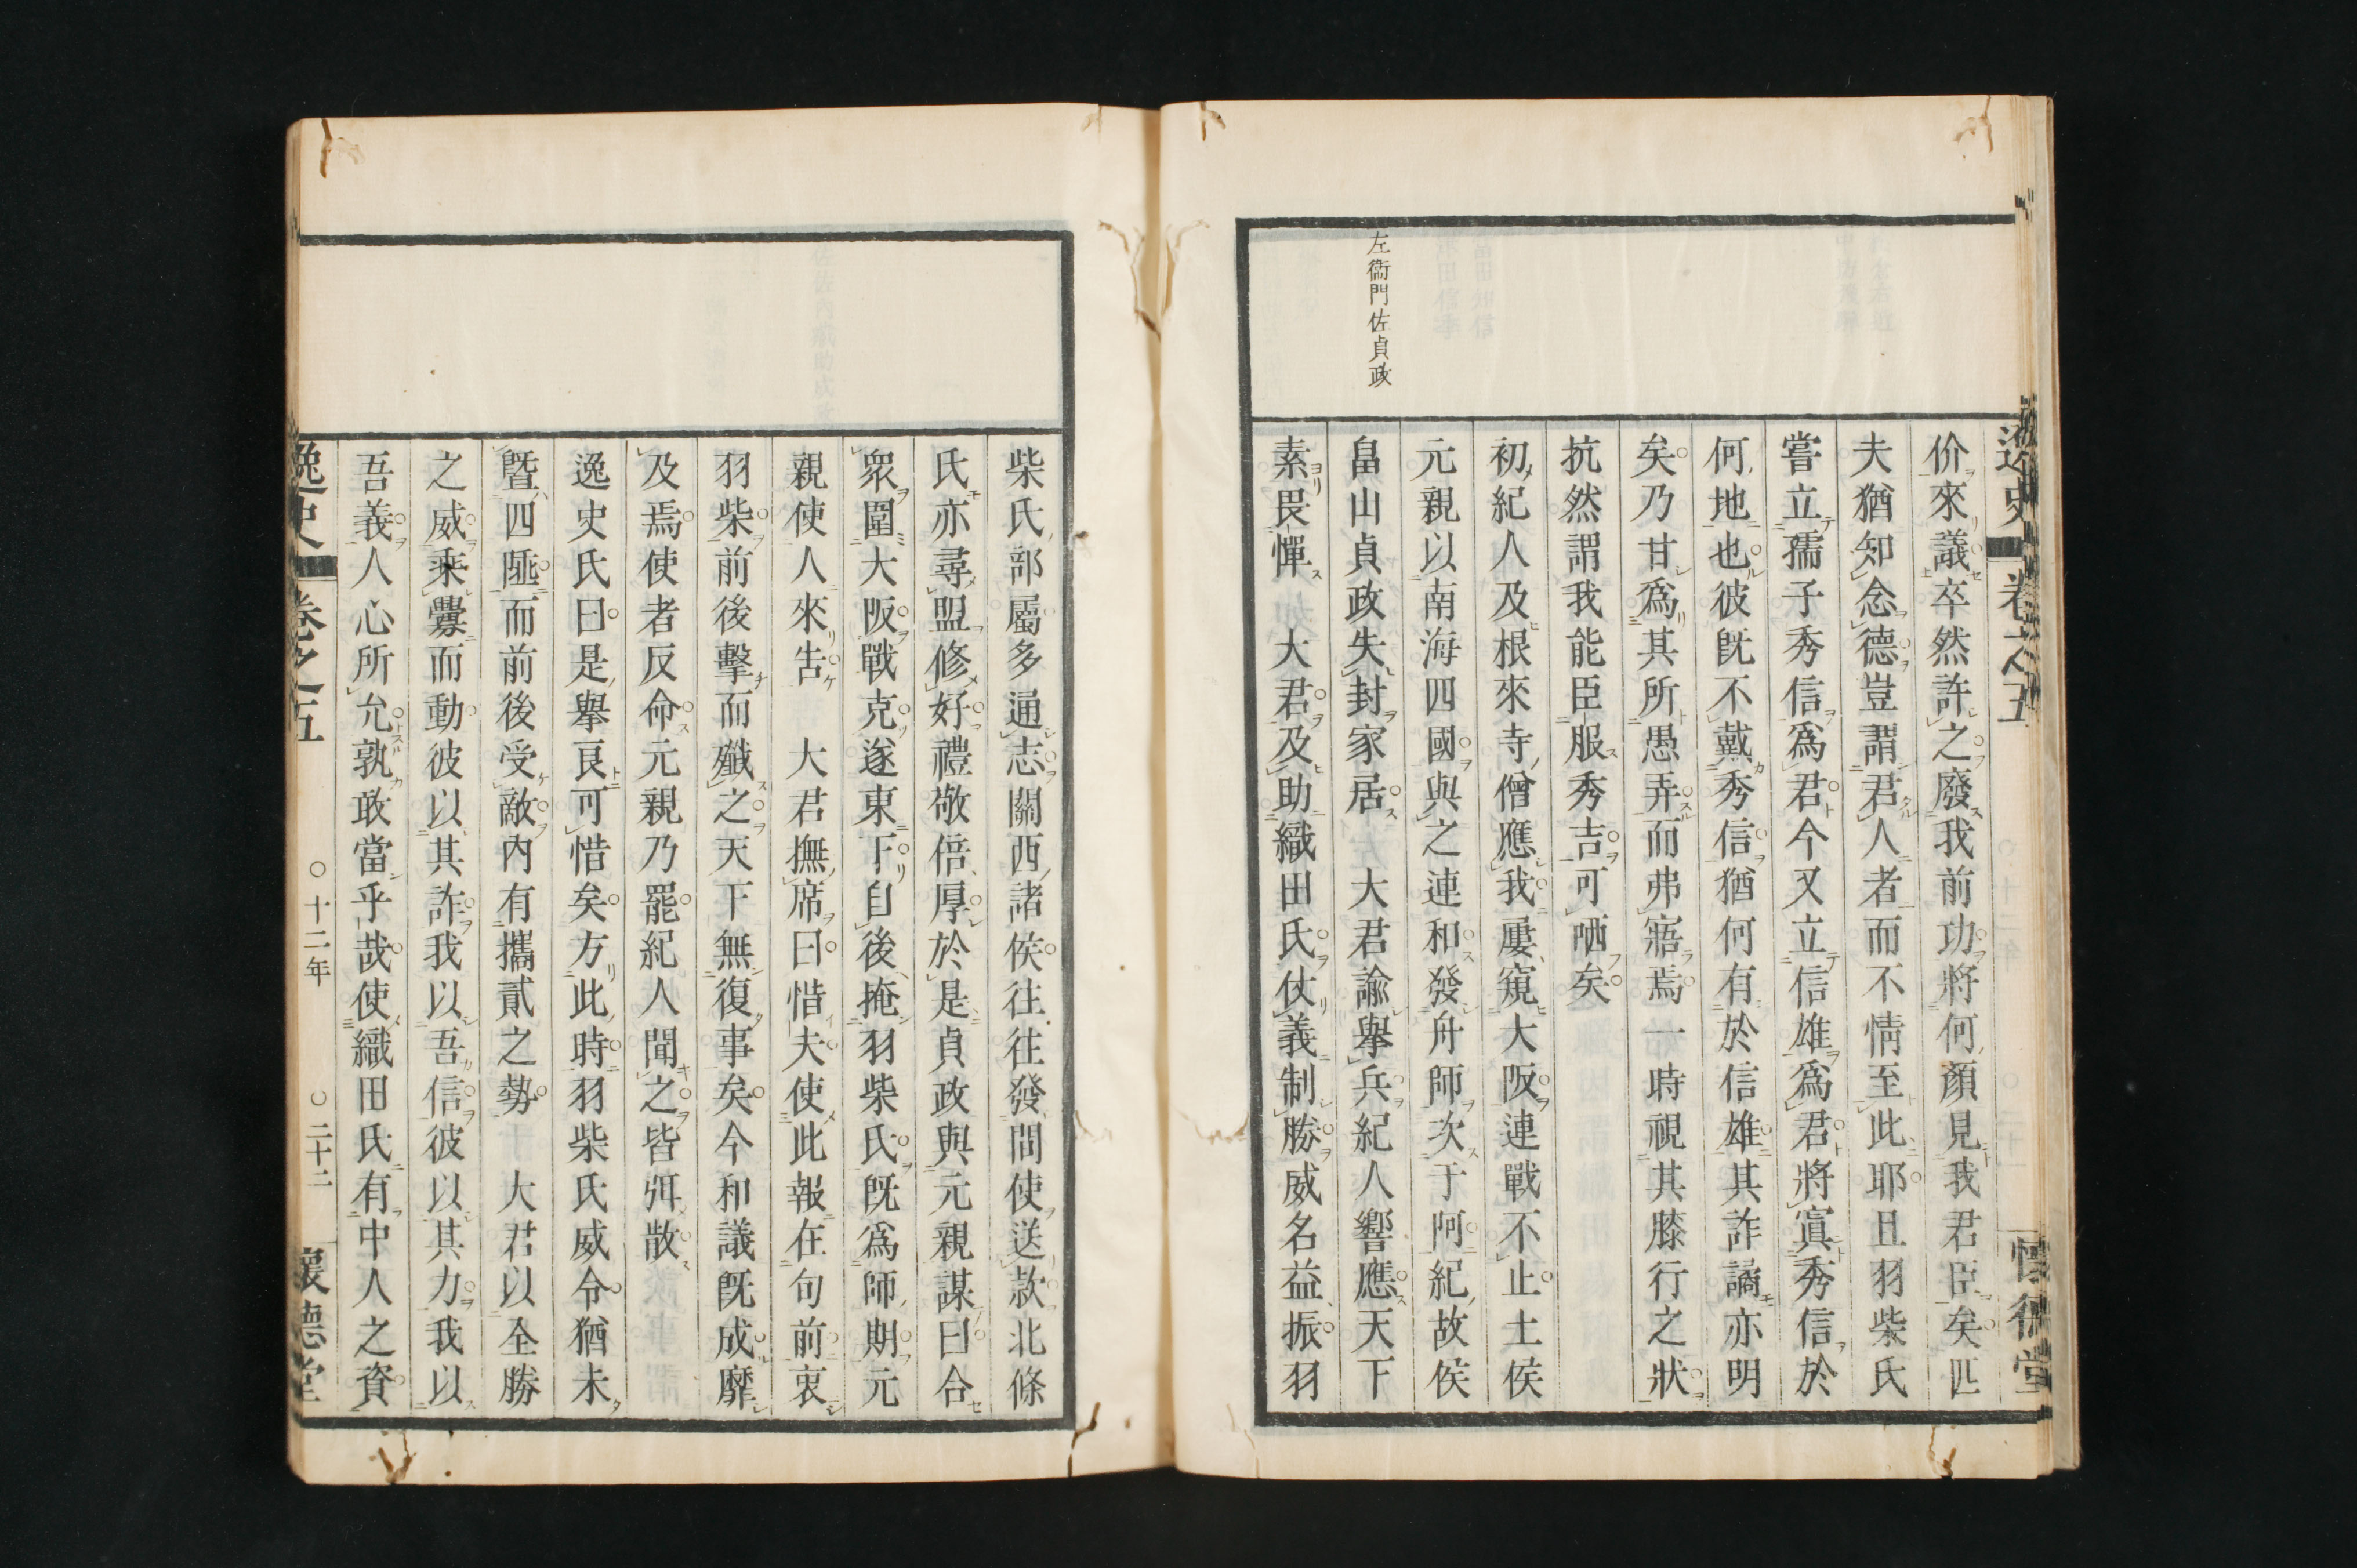 逸史
卷之五
懷德堂
价來議卒然許之廢我前功將何顏見我君臣矣匹
夫猶知念德豈謂君人者而不情至此耶且羽柴氏
嘗立孺子秀信爲君今又立信雄爲君將寘秀信於
何地也彼既不戴秀信猶何有於信雄其詐譎亦明
矣乃甘爲其所愚弄而弗寤焉一時視其膝行之狀
抗然謂我能臣服秀吉可哂矣
初紀人及根來寺僧應我屢窺大阪連戰不止土侯
元親以南海四國與之連和發舟師次于阿紀故侯
左衞門佐貞政
畠山貞政失封家居　大君諭舉兵紀人響應天下
素畏憚　大君及助織田氏仗義制勝威名益振羽
柴氏部屬多通志關西諸侯往往發間使送款北條
氏亦尋盟修好禮敬倍厚於是貞政與元親謀曰合
衆圍大阪戰克遂東下自後掩羽柴氏既爲師期元
親使人來告　大君撫席曰惜夫使此報在旬前衷
羽柴前後擊而殲之天下無復事矣今和議既成靡
及焉使者反命元親乃罷紀人聞之皆弭散
逸史氏曰是舉良可惜矣方此時羽柴氏威令猶未
曁四陲而前後受敵內有攜貳之勢　大君以全勝
之威乘釁而動彼以其詐我以吾信彼以其力我以
吾義人心所允孰敢當乎哉使織田氏有中人之資
逸史
卷之五
○十二年
○二十二
懷德堂